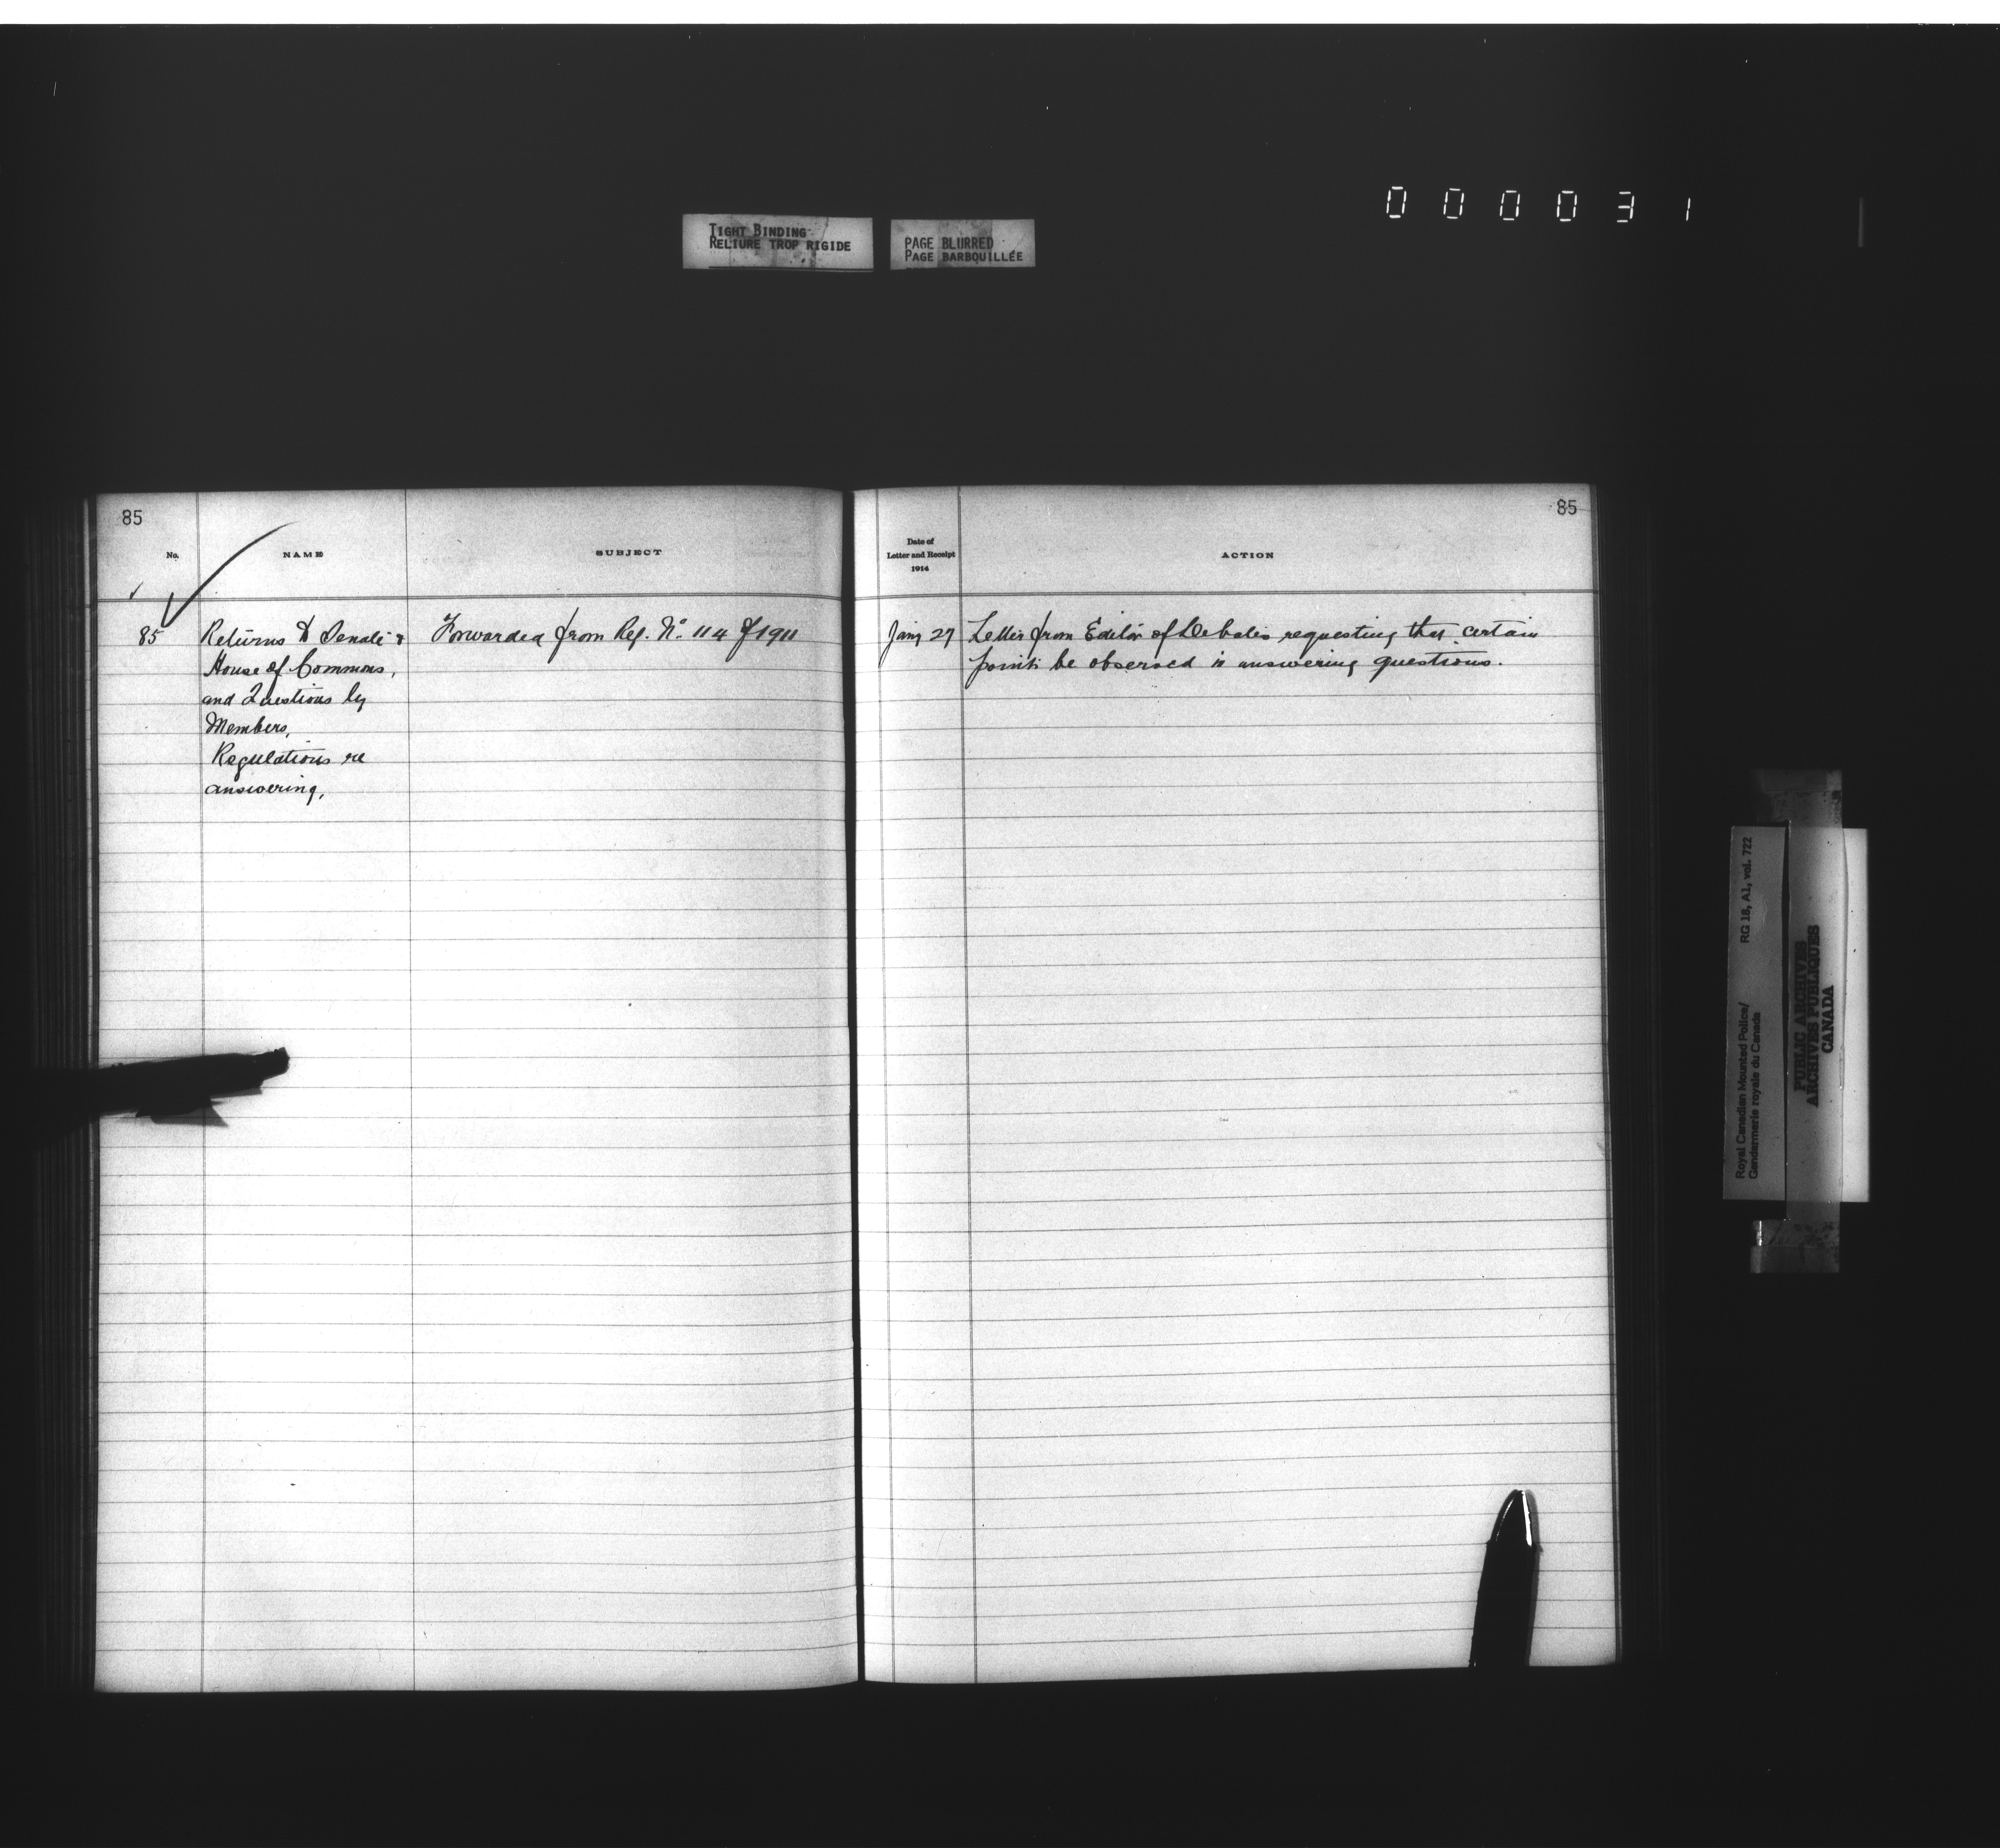 000031
TIGHT BINDING
RELIURE TROP RIGIDE
PAGE BLURRED
PAGE BARBOUILLÉE
85
No.
NAME
SUBJECT
85 Returns to Senate &
House of Commons,
and Questions by
Members,
Regulations re
answering,
Forwarded from Reg. No. 114 of 1911
85
Date of
Letter and Receipt
1914
ACTION
Jany 27 Letter from Editor of Debates requesting that certain
points be observed in answering questions.
Royal Canadian Mounted Police/ RG 18, A1, vol. 722
Gendarmerie royale du Canada
PUBLIC ARCHIVES
ARCHIVES PUBLIQUES
CANADA